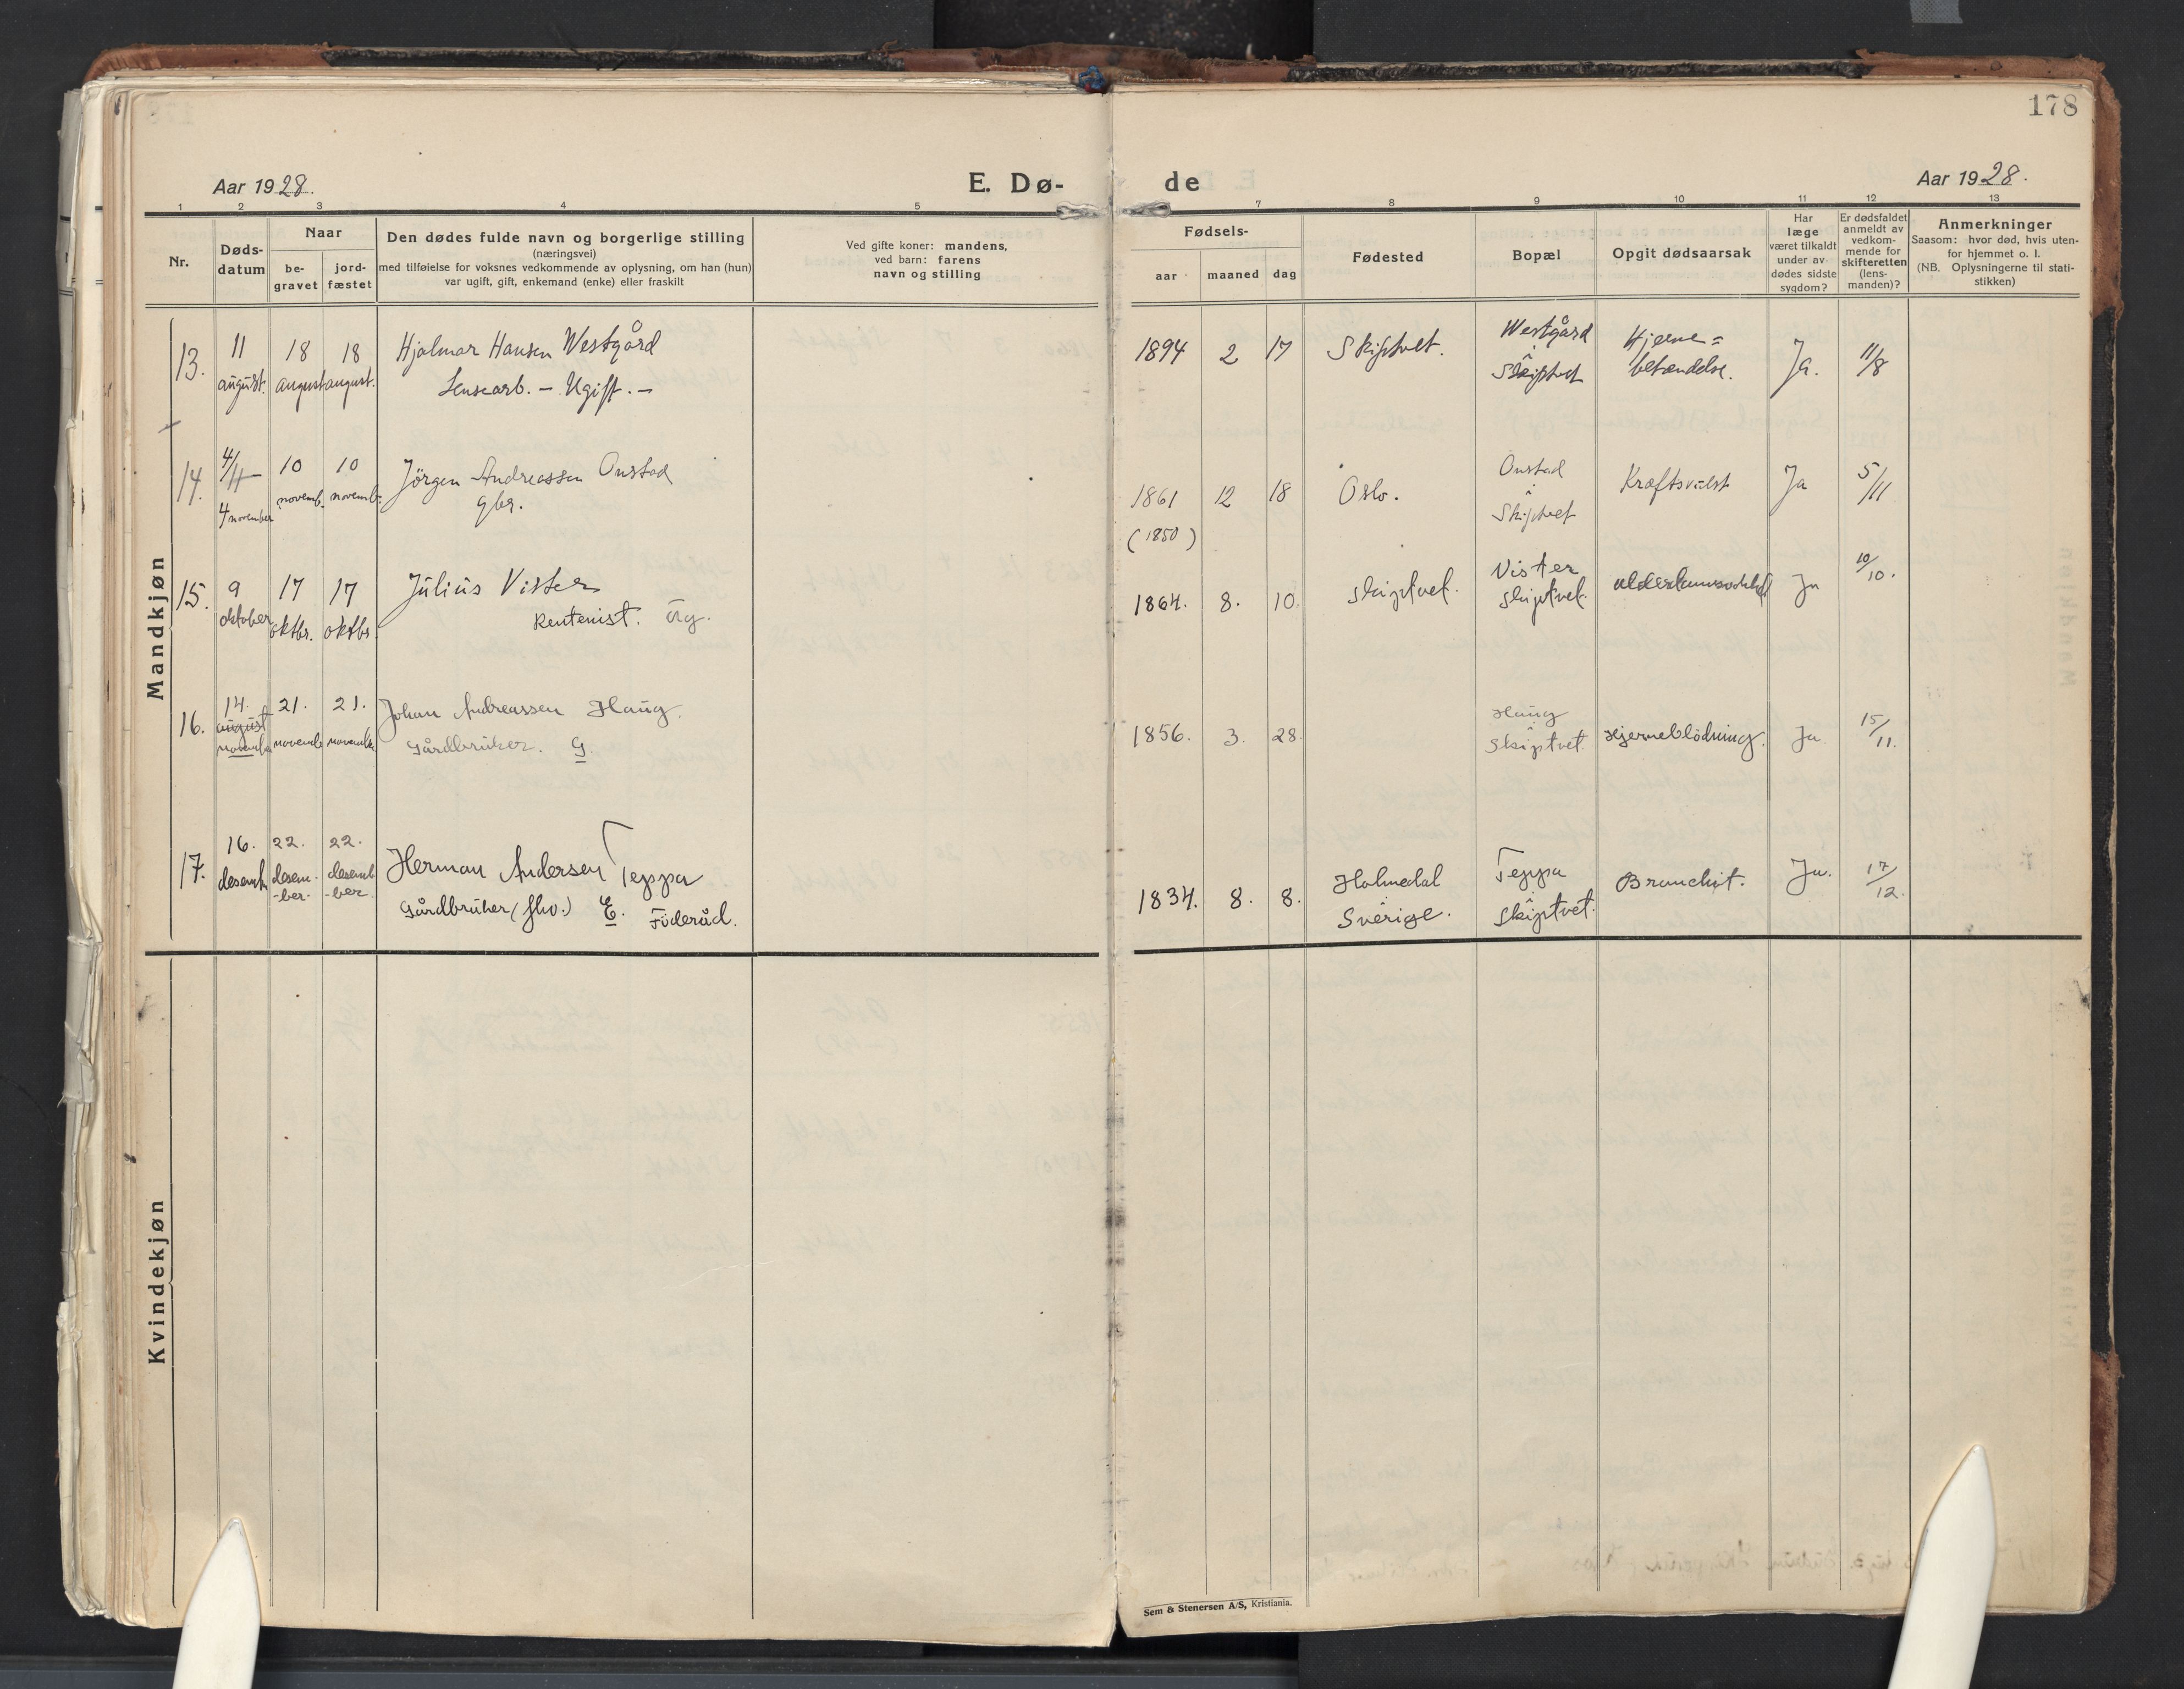 178
Aar 1928.
E. Dø-
de
Aar 1928.
1 2 3 4 5 7 8 9 10 11 12 13
Nr.
Døds-
datum
Naar
be-
gravet
jord-
fæstet
Den dødes fulde navn og borgerlige stilling
(næringsvei)
med tilføielse for voksnes vedkommende av oplysning, om han (hun)
var ugift, gift, enkemand (enke) eller fraskilt
Ved gifte koner: mandens,
ved barn: farens
navn og stilling
Fødsels-
aar maaned dag
Fødested
Bopæl
Opgit dødsaarsak
Har
læge
været tilkaldt
under av-
dødes sidste
sygdom?
Er dødsfaldet
anmeldt av
vedkom-
mende for
skifteretten
(lens-
manden)?
Anmerkninger
Saasom: hvor død, hvis uten-
for hjemmet o. l.
(NB. Oplysningerne til stati-
stikken)
Mandkjøn
13.
11
august.
18
august
18
august.
Hjalmar Hansen Westgård
Lensearb. – Ugift. –
1894 2 17
Skiptvet.
Westgård
Skiptvet
Hjerne=
betændelse.
Ja.
11/8
14.
4/11
4 november
10
novemb.
10
novemb.
Jörgen Andreassen Onstad
gbr.
1861 12 18
(1850)
Oslo.
Onstad
Skiptvet
Kraftsvulst
Ja
5/11
15.
9
oktober
17
oktbr.
17
oktbr.
Julius Vister
Rentenist. Ug.
1864. 8. 10.
Skiptvet.
Vister
Skiptvet.
Ja
10/10.
16.
14.
august
novemb.
21.
novemb.
21.
novemb.
Johan Andreassen Haug.
Gårdbruker. G.
1856. 3. 28.
Haug
Skiptvet.
Hjerneblödning.
Ja.
15/11.
17.
16.
desemb.
22.
desem-
-ber.
22.
desemb
-ber
Herman Andersen Teppa
Gårdbruker (fhv.) E. Föderåd.
1834. 8. 8.
Holmedal
Sverige.
Teppa
Skiptvet.
Bronchit.
Ja.
17/12.
Kvindekjøn
Sem & Stenersen A/S, Kristiania.